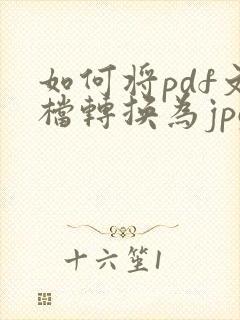 如何将pdf文
檔轉换為jpe
十六笙1